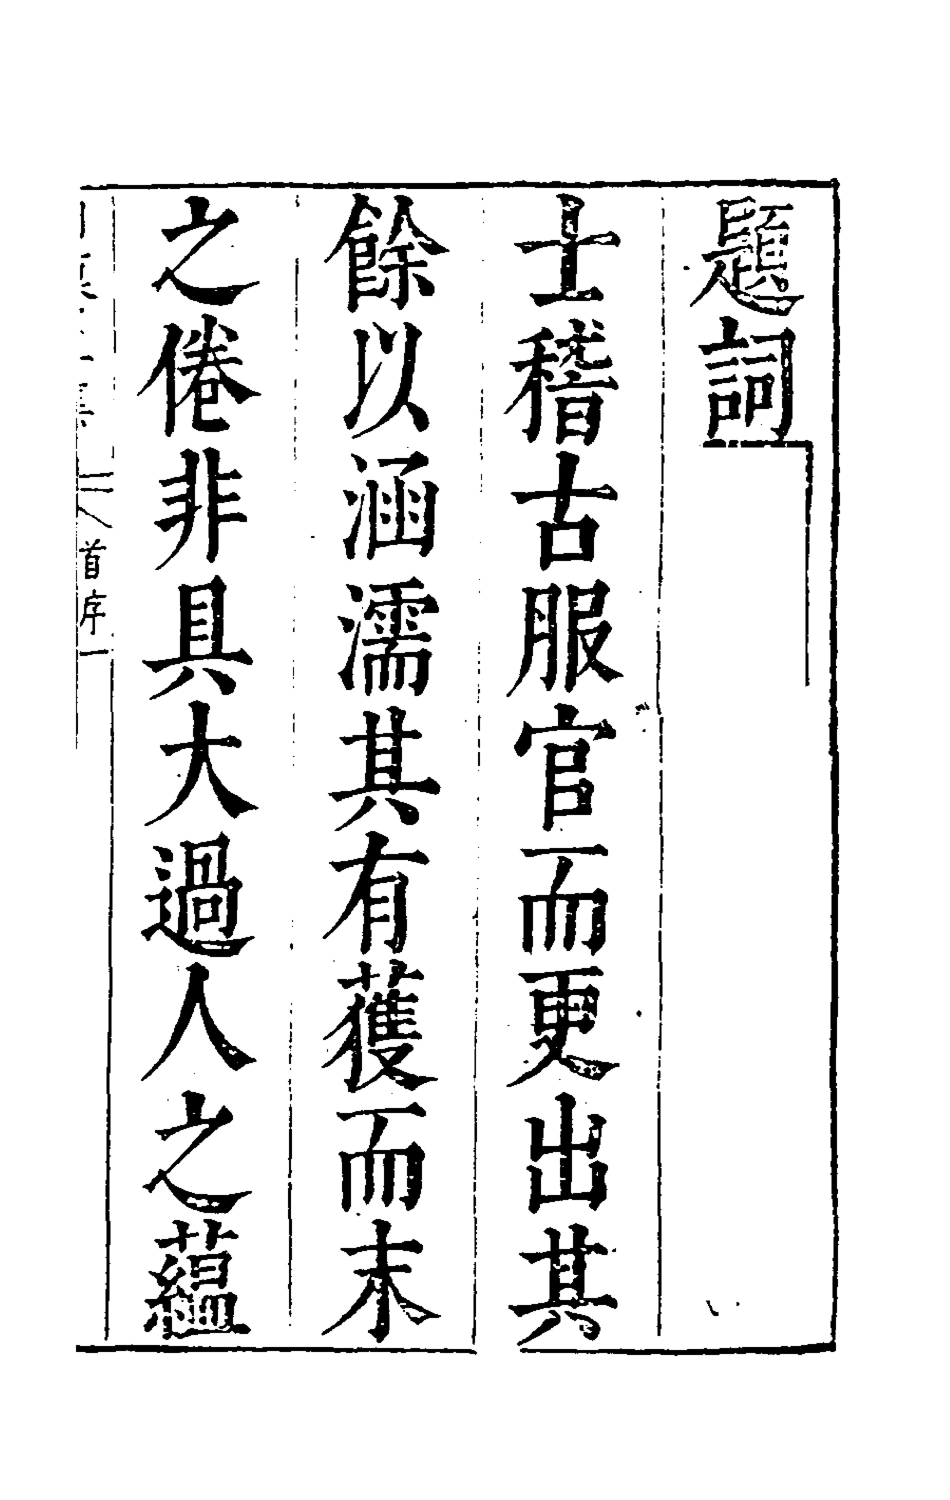 題詞
士稽古服官而更出其
餘以涵濡其有獲而末
之倦非具大過人之蘊
首序一